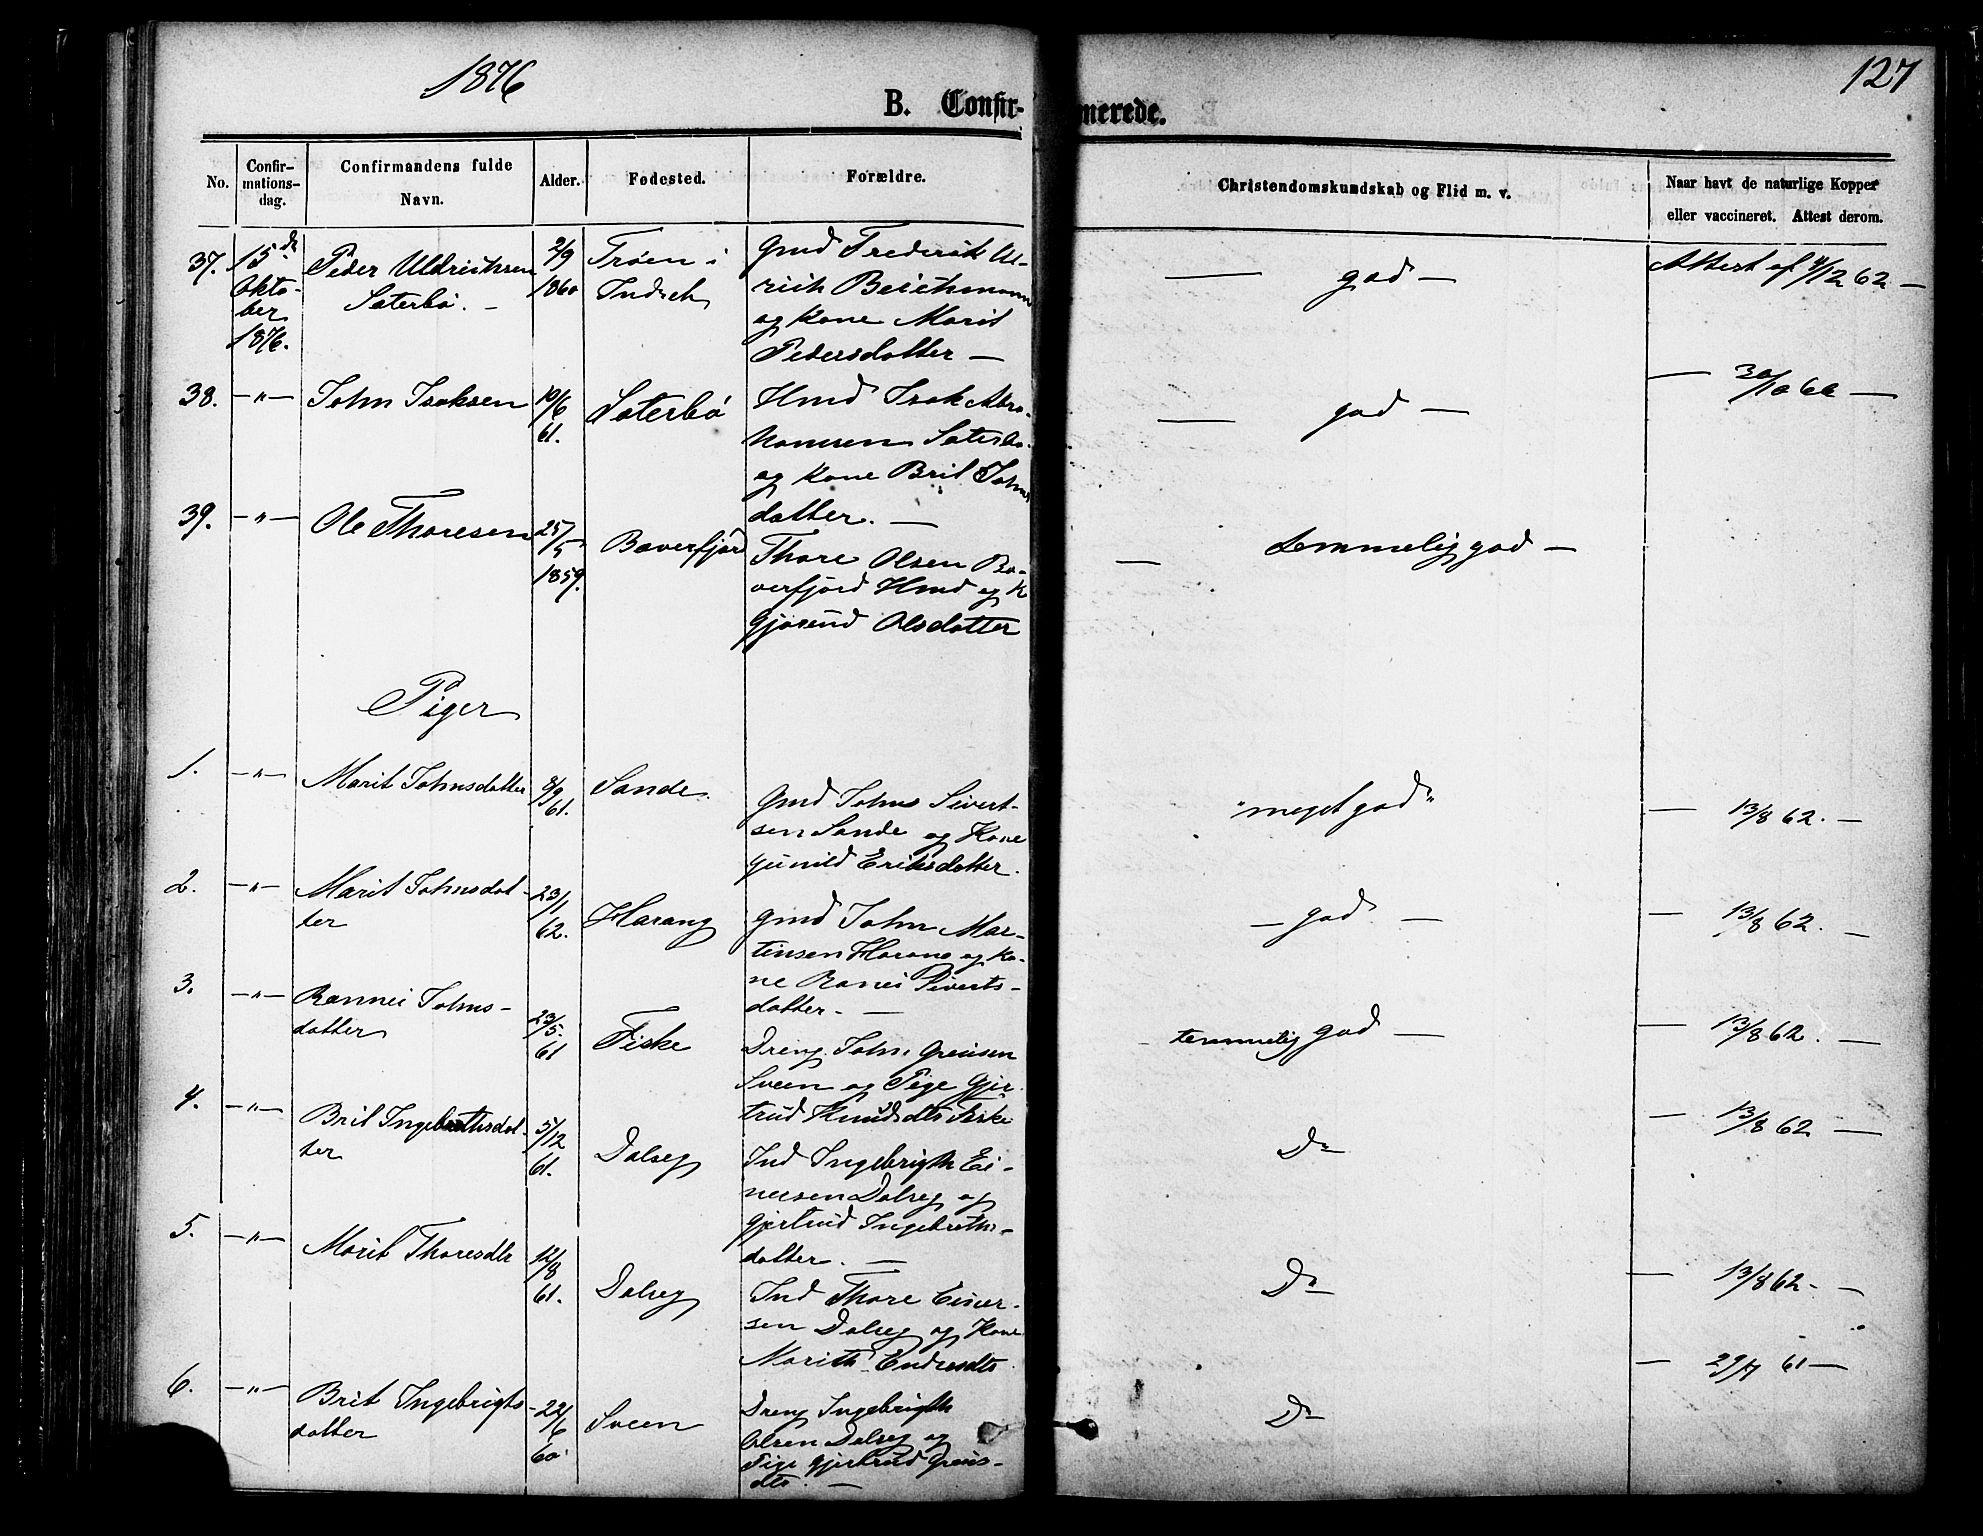 1876
127
B. Confir-
merede.
No.
Confir-
mations-
dag.
Confirmandens fulde
Navn.
Alder.
Fødested.
Forældre.
Christendomskundskab og Flid m. v.
Naar havt de naturlige Kopper
eller vaccineret. Attest derom.
37.
15de
Okto-
ber
1876.
Peder Uldrichsen
Sæterbø. –
2/9
1860
Trøen i
Indset
Gmd Frederik Ul-
rich Beichmann
og Kone Marit
Pedersdatter –
– god –
Attest af 4/12 62 –
38.
–"–
John Isaksen
10/6
61.
Sæterbø
Hmd Isak Abra-
hamsen Sæterbø
og Kone Brit Johns
datter. –
– god –
– 30/10 62 –
39.
–"–
Ole Thoresen
25/5
1859.
Bæverfjord
Thore Olsen Bæ-
verfjord Hmd og K
Gjørund Olsdatter
– temmelig god –
Piger
1.
–"–
Marit Johnsdatter
8/9
61.
Sande.
Gmd John Sivert-
sen Sande og Kone
Gunild Eriksdatter.
"meget god"
– 13/8 62. –
2.
–"–
Marit Johnsdat-
ter
23/1
62.
Harang
Gmd John Mar-
tinsen Harang og Ko-
ne Ranei Siverts-
datter. –
– god –
– 13/8 62. –
3.
–"–
Rannei Johns-
datter
23/5.
61
Fiske
Dreng John Greisen
Sveen og Pige Gjer-
trud Knudsdtr Fiske
– temmelig god –
– 13/8 62. –
4.
–"–
Brit Ingebrethsdat-
ter
5/12
61.
Dalseg
Ind Ingebrigth Ei-
nersen Dalseg og
Gjertrud Ingebreths-
datter. –
Do
– 13/8 62 –
5.
–"–
Marit Thoresdtr
12/8
61.
Dalseg
Ind Thore Einer-
sen Dalseg og Kone
Marith Endresdtr
Do
– 13/8 62 –
6.
–"–
Brit Ingebrigts-
datter
22/6
60
Sveen
Dreng Ingebrigth
Olsen Dalseg og
Pige Gjertrud Greis-
dtr. –
Do
– 61 –